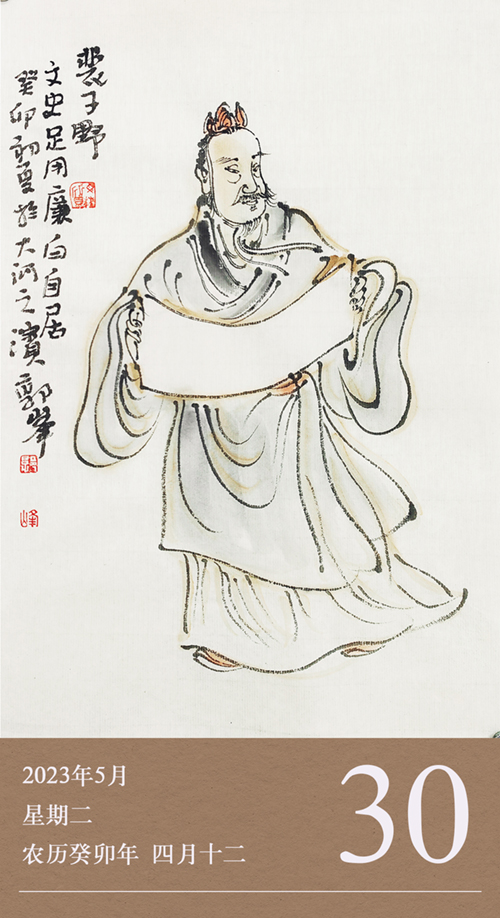 裴子野
文史足用廉白自居
癸卯初夏於大河之濱郭峰
峰
2023年5月
星期二
农历癸卯年 四月十二
30